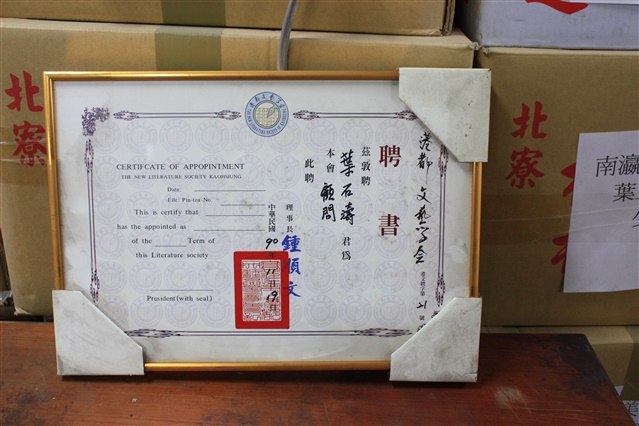 港都文藝學會
港文聘字第21號
聘書
茲敦聘
葉石濤 君為
本會 顧問
此聘
理事長 鍾順文
中華民國90年11月19日
CERTIFICATE OF APPOINTMENT
THE NEW LITERATURE SOCIETY KAOHIUNG
Date:
File: Pin-tzu No.
This is certify that
has the appointed as
of the Term of
this Literature society
President (with seal)
北寮
北寮
南瀛
葉